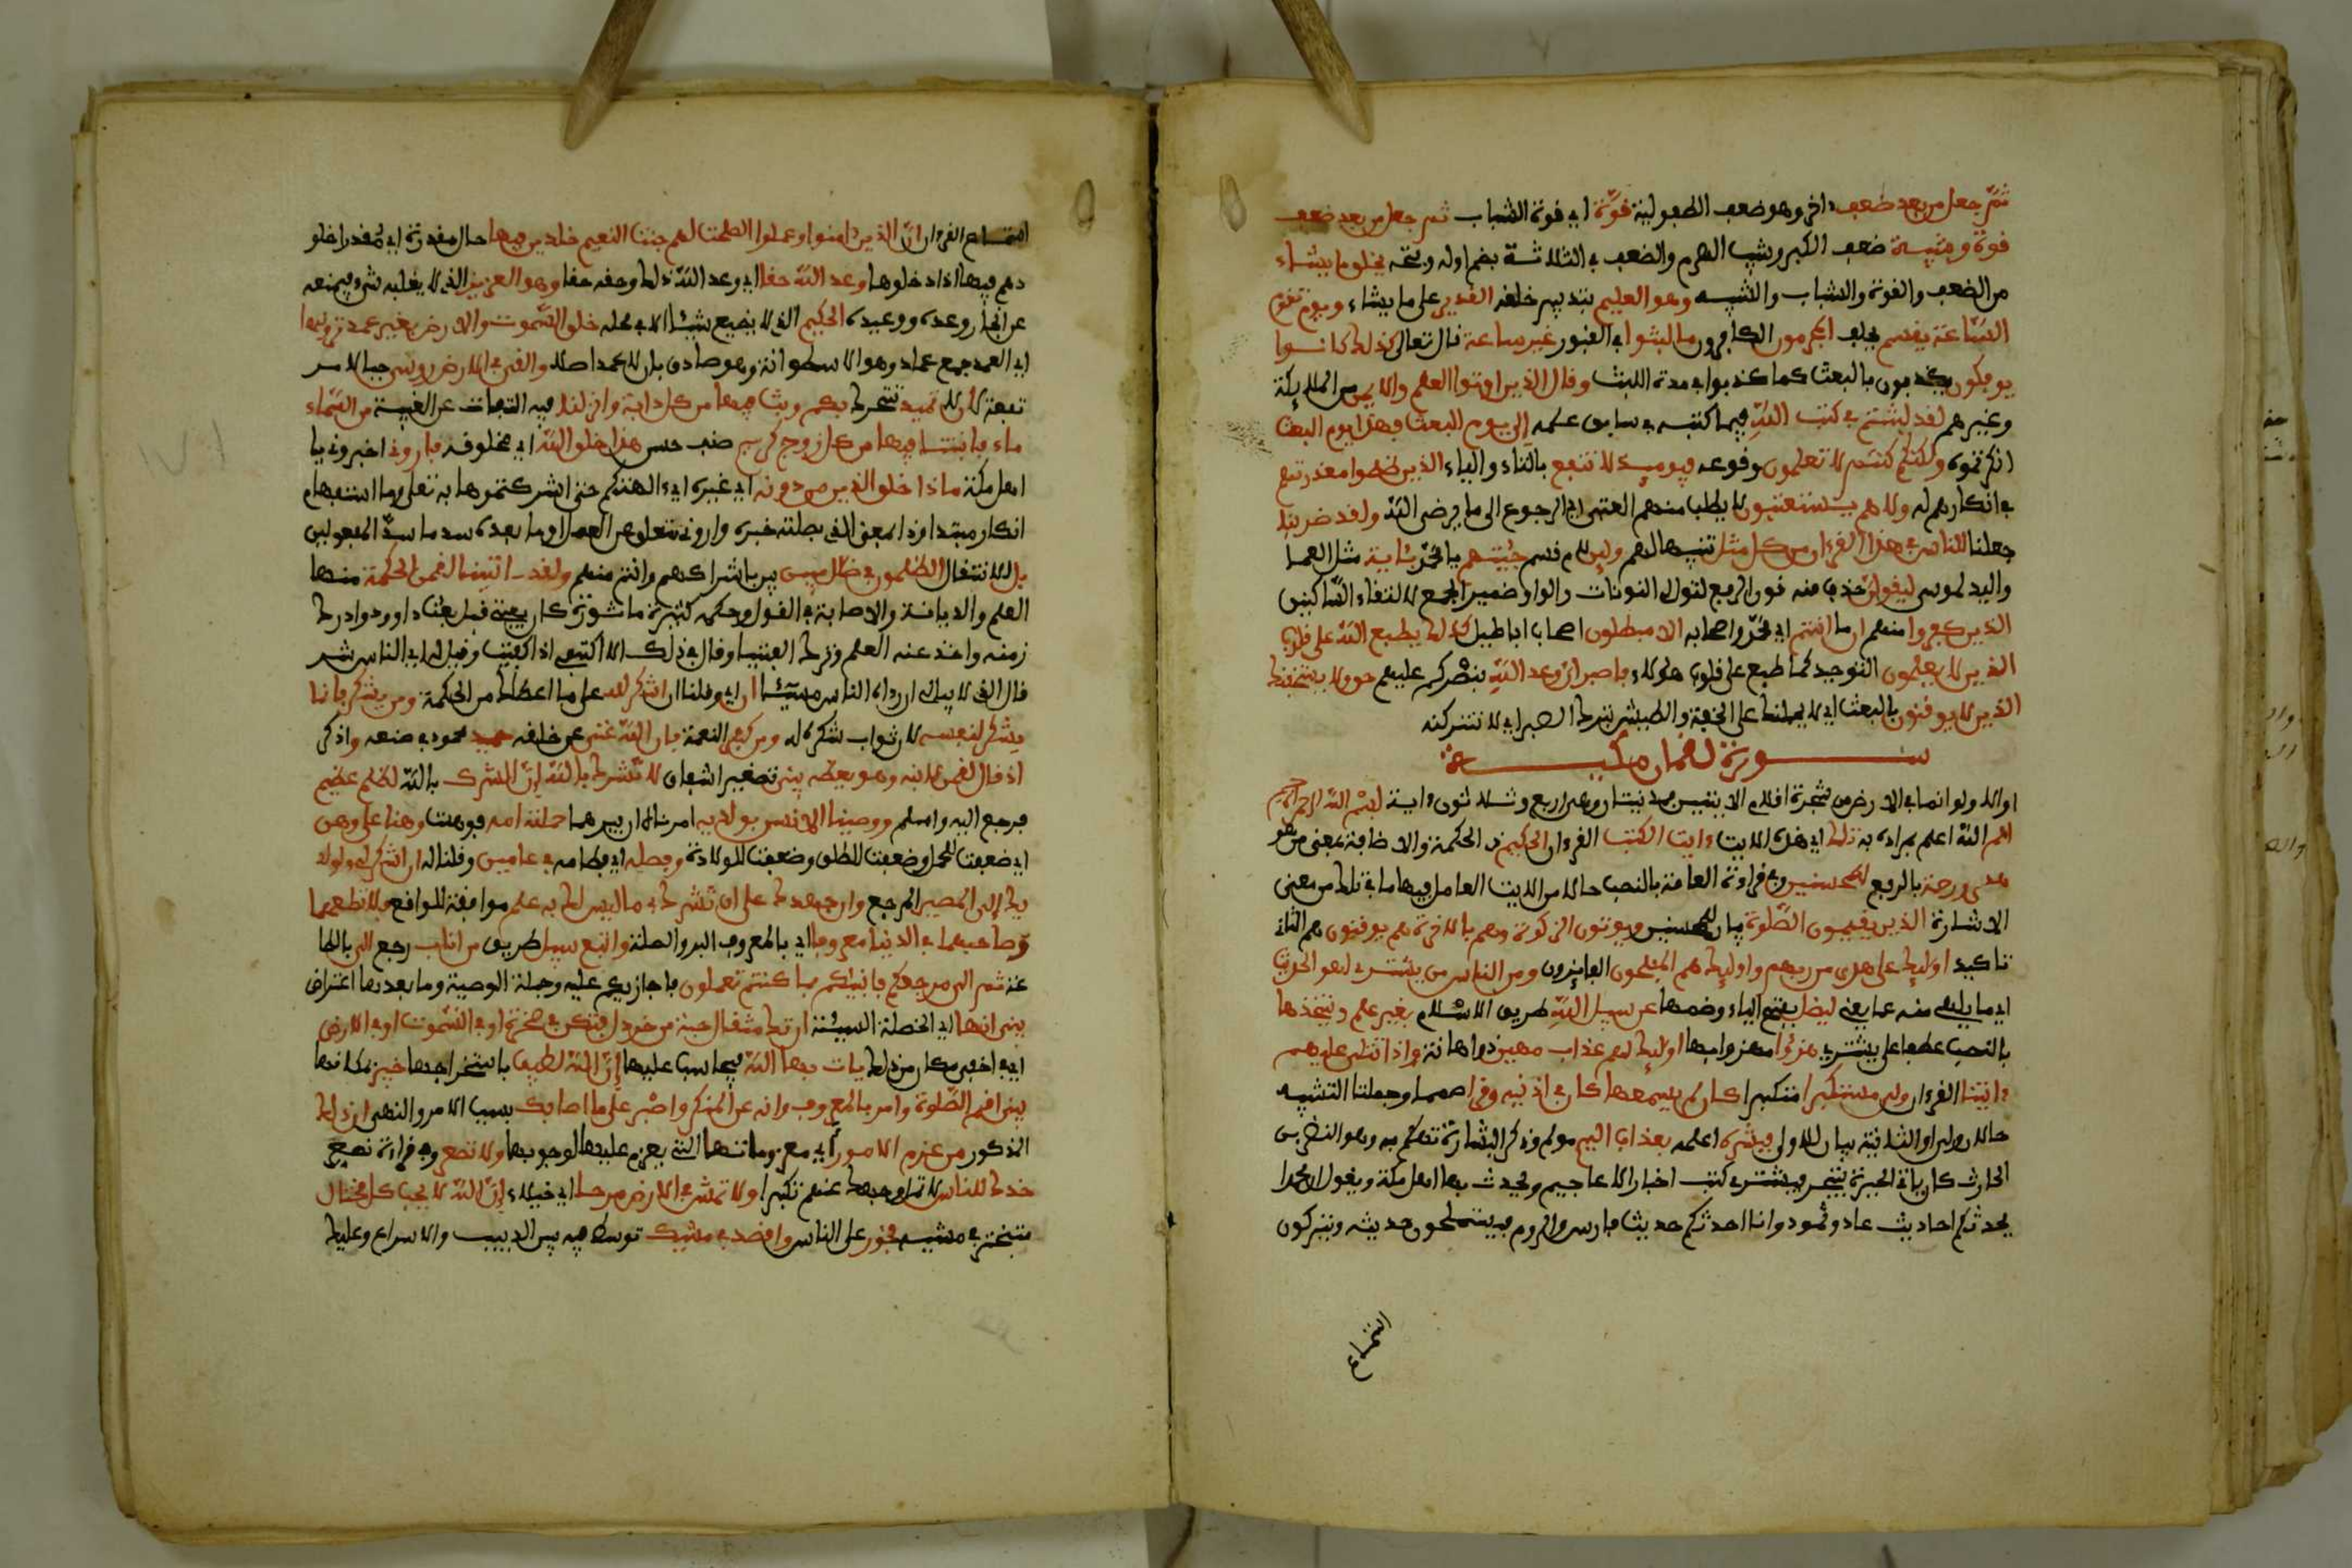 ثمّ جعل من بعد ضعف ءاخر وهو ضعف الطفولية قوّة اي قوة الشباب ثم جعل من بعد ضعف
قوة وشيبة ضعف الكبر وشيب الهرم والضعف في الثلاثة بضم اوله وفتحه يخلق ما يشاء
من الضعف والقوة والشباب والشيبه وهو العليم بتدبير خلقه القدير على ما يشاء ويوم تقوم
السّاعة يقسم يحلف المجرمون الكافرون ما لبثوا في القبور غير ساعة قال تعالى كذلك كانوا
يوفكون يكذبون بالبعث كما كذبوا في مدة اللبث وقال الذين اوتوا العلم والايمن من الملايكة
وغيرهم لقد لبثتم في كتب اللّه فيما كتبه في سابق علمه الى يوم البعث فهذا يوم البعث
انكرتموه ولكنكم كنتم لا تعلمون وقوعه فيوميذ لا تنفع بالتاء والياء الذين ظلموا معذرتهم
في انكارهم له ولا هم يستعتبون لا يطلب منهم العتبى اي الرجوع الى ما يرضي اللّه ولقد ضربنا
جعلنا للناس في هذا القرءان من كل مثل تنبيها لهم ولين لام قسم جيتهم يا محمّد باية مثل العصا
واليد لموسى ليقولن حذف منه نون الرفع لتوالي النونات والواو ضمير الجمع لالتقاء السّاكنين
الذين كفروا منهم ان ما انتم اي محمّد واصحابه الا مبطلون اصحاب اباطيل كذلك يطبع اللّه على قلوب
الذين لا يعلمون التوحيد كما طبع على قلوب هولاء فاصبر انّ وعد اللّه بنصركم عليهم حق ولا يستخفنك
الذين لا يوقنون بالبعث اي لا يحملنك على الخفة والطيش بترك الصبر اي لا تتركنه
سورة لقمان مكية
او الا ولو انما في الارض من شجرة اقلام الايتين مدنيتان وهي اربع وثلاثون ءاية بسم اللّه الرحمن الرحيم
الم اللّه اعلم بمراده به تلك اي هذه الايت ءايت الكتب القرءان الحكيم ذي الحكمة والاضافة بمعنى من هو
هدى ورحمة بالرفع للمحسنين وفي قراءة العامة بالنصب حالا من الايت العامل فيها ما في تلك من معنى
الاشارة الذين يقيمون الصّلوة بيان للمحسنين ويوتون الزكوة وهم بالاخرة هم يوقنون هم الثاني
تاكيد اوليك على هدى من ربهم واوليك هم المفلحون الفايزون ومن الناس من يشتري لهو الحديث
اي ما يلهي منه عما يعني ليضل بفتح الياء وضمها عن سبيل اللّه طريق الاسلام بغير علم ويتخذها
بالنصب عطفا على يضل وبالرفع عطفا على يشتري هزؤا مهزوا بها اوليك لهم عذاب مهين ذو اهانة واذا تتلى عليهم
ءايتنا القرءان ولى مستكبرا متكبرا كان لم يسمعها كان في اذنيه وقرا صمما وجملتا التشبيه
حالان من ولى او الثانية بيان للاولى فبشره اعلمه بعذاب اليم مولم وذكر البشارة تهكم به وهو النضر بن
الحارث كان ياتي الحيرة يتجر فيشتري كتب اخبار الاعاجيم ويحدث بها اهل مكة ويقول ان محمدا
يحدثكم احاديث عاد وثمود وانا احدثكم حديث فارس والروم فيستملحون حديثه ويتركون
استماع
استماع القرءان انّ الذين ءامنوا وعملوا الصلحت لهم جنت النعيم خلدين فيها حال مقدرة اي مقدرا خلو
دهم فيها اذا دخلوها وعد اللّه حقا اي وعد اللّه ذلك وحقه حقا وهو العزيز الذي لا يغلبه شيء فيمنعه
عن انجاز وعده ووعيده الحكيم الذي لا يضيع شييا الا في محله خلق السّموت والارض بغير عمد ترونها
اي العمد جمع عماد وهو الاسطوانة وهو صادق بان لا عمد اصلا والقى في الارض روسي جبالا مر
تفعة لان لا تميد تتحرك بكم وبث فيها من كل دابة وانزلنا فيه التفات عن الغيبة من السّماء
ماء فانبتنا فيها من كل زوج كريم صنف حسن هذا خلق اللّه اي مخلوقه فاروني اخبروني يا
اهل مكة ماذا خلق الذين من دونه اي غيره اي الهتكم حتى اشركتموها به تعلى وما استفهام
انكار مبتدا وذا بمعنى الذي بصلته خبره واروني متعلق عن العمل وما بعده سد مسدّ المفعولين
بل للانتقال الظلمون في ضلل مبين بين باشراكهم وانتم منهم ولقد اتينا لقمن الحكمة منها
العلم والديانة والاصابة في القول وحكمه كثيرة ماثورة كان يفتي قبل بعث داوود وادرك
زمنه واخذ عنه العلم وترك الفتيا وقال في ذلك الا اكتفي اذا كفيت وقيل له اي الناس شر
قال الذي لا يبالي ان رءاه الناس مسييا ان اي وقلنا ان اشكر لله على ما اعطاك من الحكمة ومن يشكر فانما
يشكر لنفسه لان ثواب شكره له ومن كفر النعمة فان اللّه غني عن خلقه حميد محمود في صنعه واذكر
اذ قال لقمن لابنه وهو يعظه يبني تصغير اشفاق لا تشرك باللّه انّ الشرك باللّه لظلم عظيم
فرجع اليه واسلم ووصينا الانسن بولديه امرناه ان يبرهما حملته امه فوهنت وهنا على وهن
اي ضعفت للحمل وضعفت للطلق وضعفت للولادة وفصله اي فطامه في عامين وقلنا له ان اشكر لي ولولد
يك الي المصير المرجع وان جهدك على ان تشرك بي ما ليس لك به علم موافقة للواقع فلا تطعهما
وصاحبهما في الدنيا معروفا اي بالمعروف البر والصلة واتبع سبيل طريق من اناب رجع الي بالطا
عة ثم الي مرجعكم فانبيكم بما كنتم تعملون فاجازيكم عليه وجملة الوصية وما بعدها اعتراض
يبني انها اي الخصلة السييئة ان تك مثقال حبة من خردل فتكن في صخرة او في السّموت او في الارض
اي في اخفى مكان من ذلك يات بها اللّه فيحاسب عليها انّ اللّه لطيف باستخراجها خبير بمكانها
يبني اقم الصّلوة وامر بالمعروف وانه عن المنكر واصبر على ما اصابك بسبب الامر والنهي ان ذلك
المذكور من عزم الامور اي معزوماتها التي يعزم عليها لوجوبها ولا تصعر وفي قراءة تصعر
خدك للناس لا تمل وجهك عنهم تكبرا ولا تمش في الارض مرحا اي خيلاء انّ اللّه لا يحب كل مختال
متبختر في مشيه فخور على الناس واقصد في مشيك توسط فيه بين الدبيب والاسراع وعليك